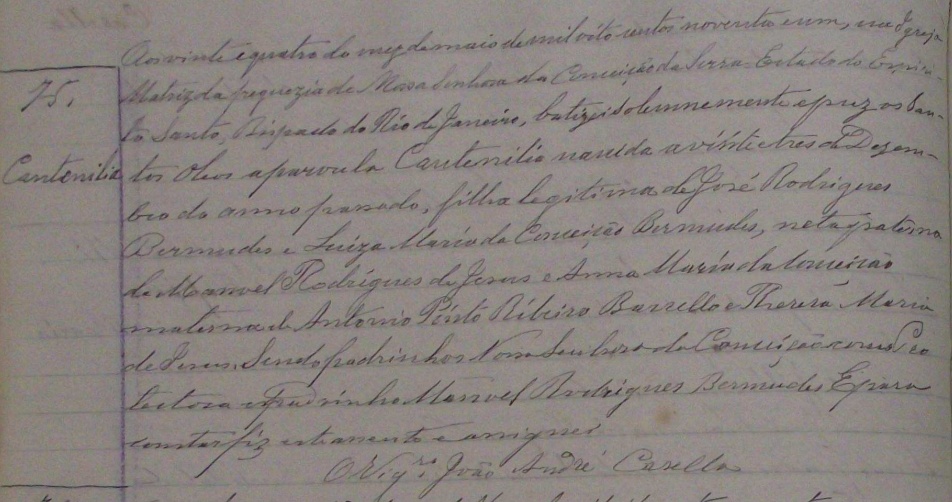 Aos vinte e quatro do mez de maio de mil oito centos noventa e um, na Igreja
75.
Matriz da freguezia de Nossa Senhora da Conceição da Serra Estado do Espiri
to Santo, Bispado do Rio de Janeiro, batizei solemnemente e puz os San-
Cantenilia
tos Oleos a parvula Cantenilia nascida a vinte e tres de Dezem-
bro do anno passado, filha legitima de José Rodrigues
Bermudes e Luiza Maria da Conceição Bermudes, neta paterna
de Manoel Rodrigues de Jesus e Anna Maria da Conceição
materna de Antonio Pinto Ribeiro Barcello e Thereza Maria
de Jesus. Sendo padrinhos Nossa Senhora da Conceição como Pro
tectora e Padrinho Manoel Rodrigues Bermudes E para
constar fiz este assento e assignei
O Vigr.º João André Casella